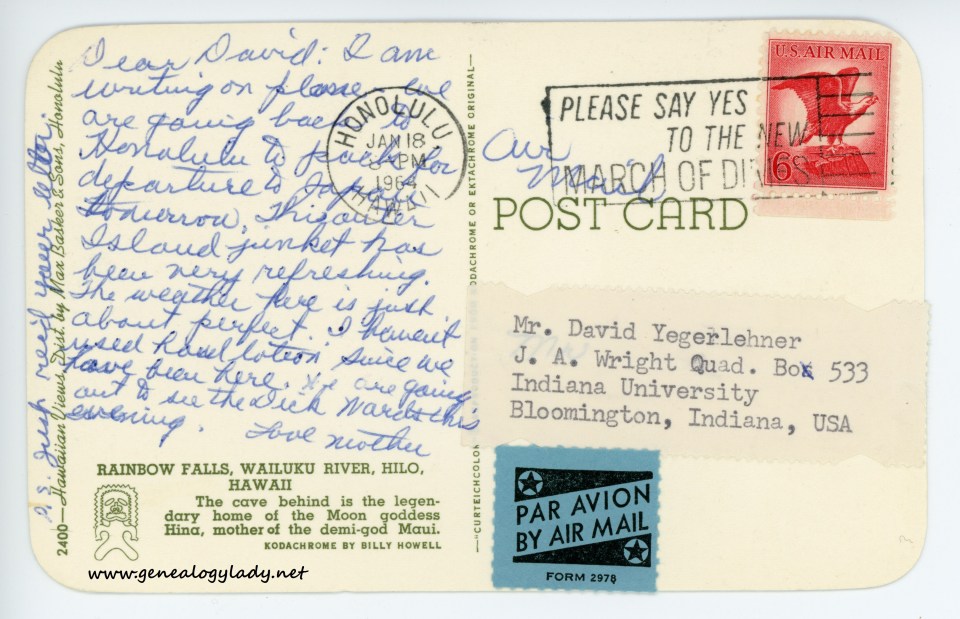 Dear David: I am
writing on plane. we
are going back to
Honolulu to pack for
departure to Japan
tomorrow. This outer
Island junket has
been very refreshing.
The weather here is just
about perfect. I haven't
used hand lotion since we
have been here. We are going
out to see the Dick Wards this
evening.
Love mother
P.S. Just rec'd your letter.
2400—Hawaiian Views, Dist. by Max Basker & Sons, Honolulu
RAINBOW FALLS, WAILUKU RIVER, HILO,
HAWAII
The cave behind is the legen-
dary home of the Moon goddess
Hina, mother of the demi-god Maui.
KODACHROME BY BILLY HOWELL
www.genealogylady.net
HONOLULU
JAN 18
PM
1964
HAWAII
PLEASE SAY YES
TO THE NEW
MARCH OF DIMES
U.S. AIR MAIL
6¢
Air
Mail
POST CARD
Mr. David Yegerlehner
J. A. Wright Quad. Box 533
Indiana University
Bloomington, Indiana, USA
PAR AVION
BY AIR MAIL
FORM 2978
ODACHROME OR EKTACHROME ORIGINAL—
—"CURTEICHCOLOR